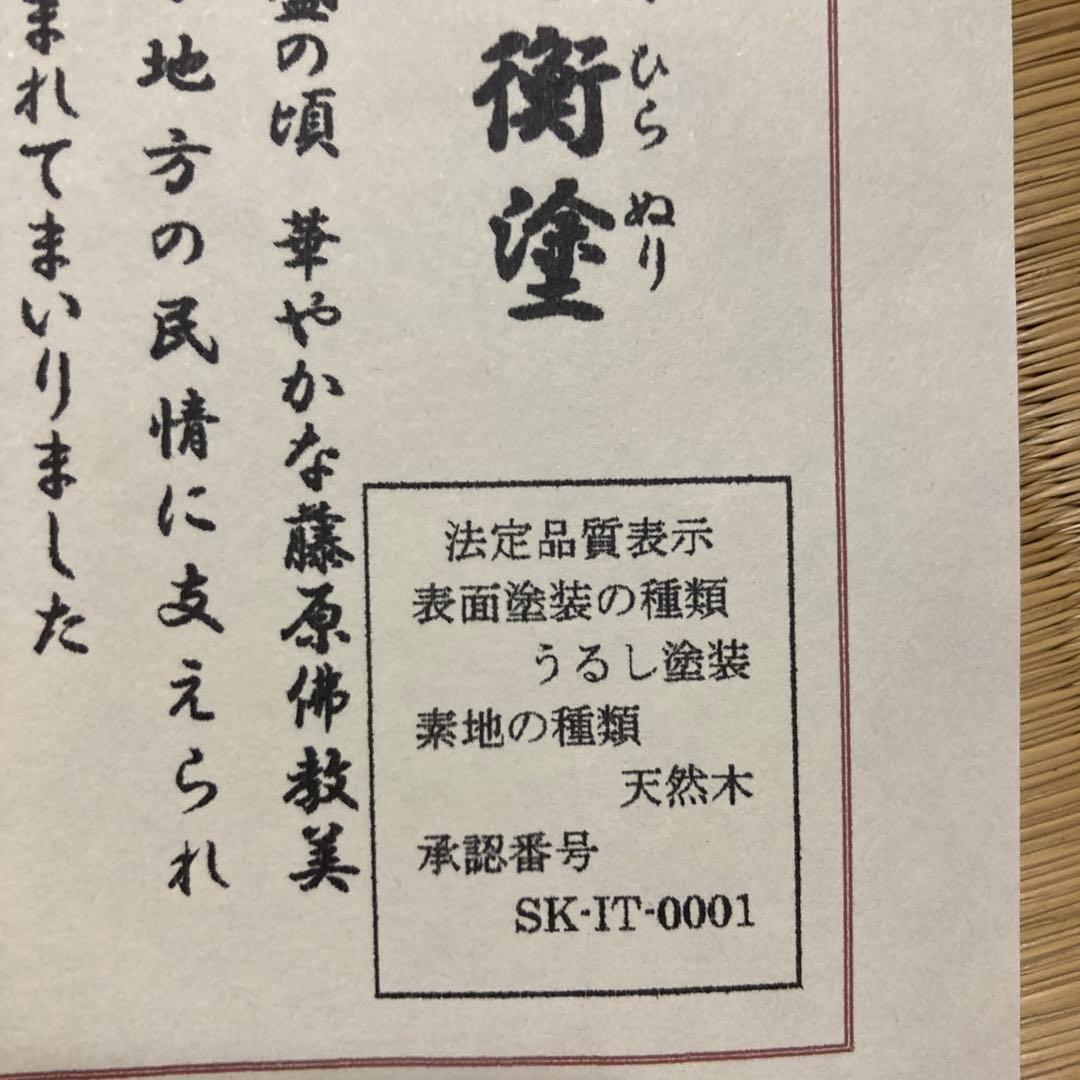 衡塗
ひら ぬり
盛の頃 華やかな藤原佛教美
地方の民情に支えられ
まれてまいりました
法定品質表示
表面塗装の種類
うるし塗装
素地の種類
天然木
承認番号
SK-IT-0001